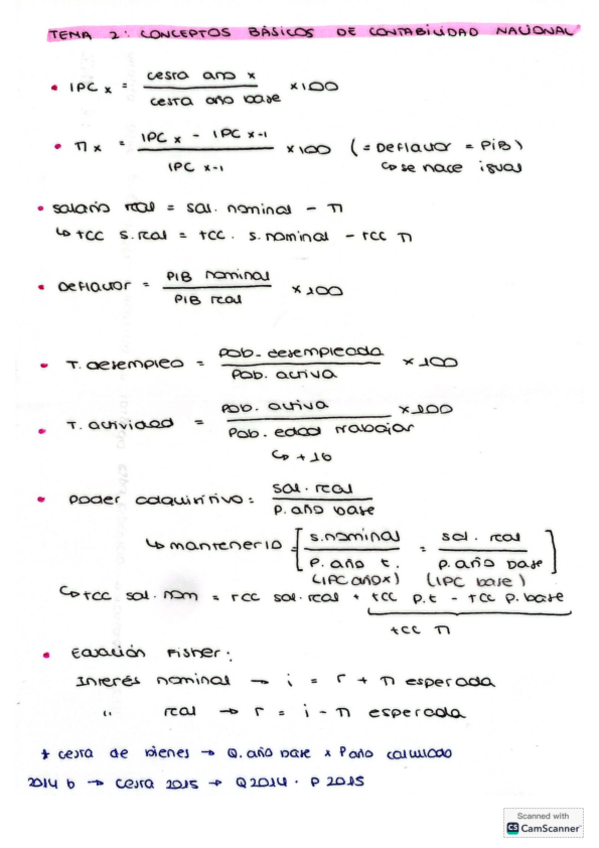 TEMA 2: CONCEPTOS BÁSICOS DE CONTABILIDAD NACIONAL
• IPC x = cesta año x / cesta año base × 100
• π x = IPC x - IPC x-1 / IPC x-1 × 100 (= Deflactor = PIB)
↳ se hace igual
• salario real = sal. nominal - π
↳ tcc s.real = tcc. s.nominal - tcc π
• Deflactor = PIB nominal / PIB real × 100
• T. desempleo = Pob. desempleada / Pob. activa × 100
• T. actividad = Pob. activa / Pob. edad trabajar × 100
↳ + 16
• Poder adquisitivo: sal. real / P. año base
↳ mantenerlo = [ s.nominal / P. año t. = sal. real / P. año base ]
(IPC año x) (IPC base)
↳ tcc sal. nom = tcc sal. real + tcc p.t - tcc p.base
tcc π
• Ecuación Fisher:
Interés nominal → i = r + π esperada
" real → r = i - π esperada
* cesta de bienes → Q. año base x P año calculado
2014 b → cesta 2015 → Q2014 · P 2015
Scanned with
CS CamScanner